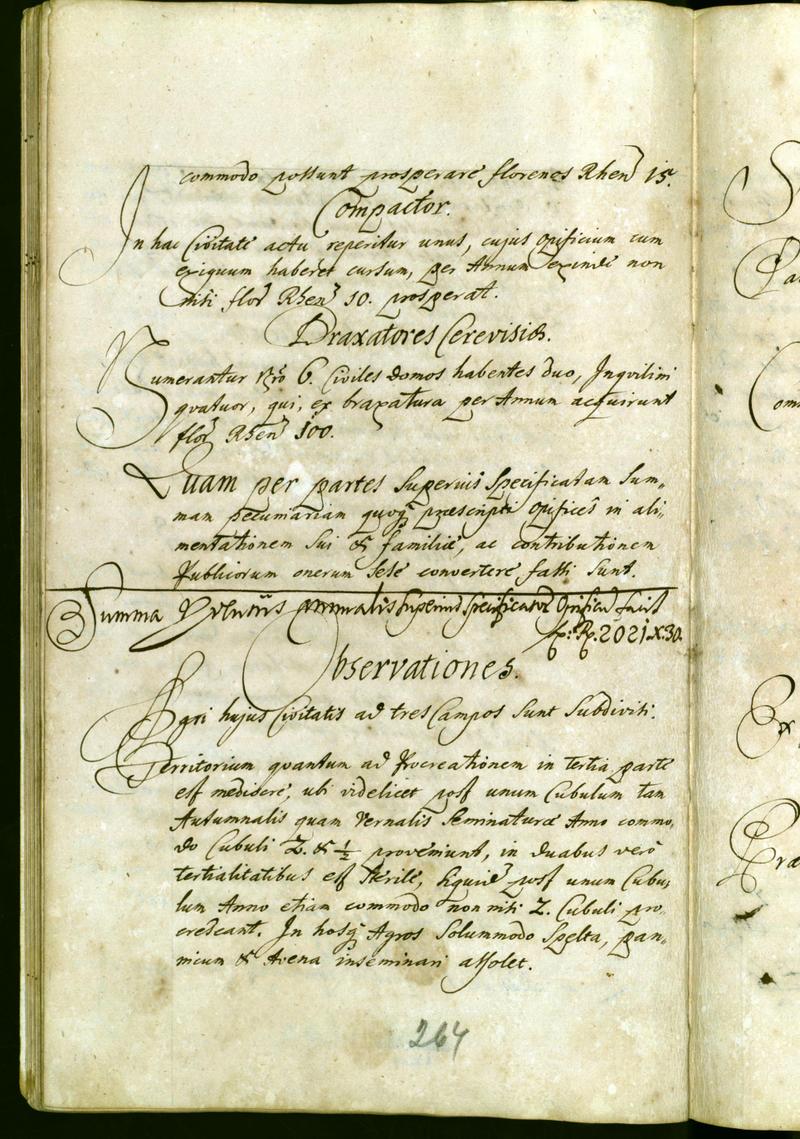 commodo possunt prosperare florenos Rhen 15.
Compactor.
In hac Civitate actu reperitur unus, cujus opificium cum
exiguum haberet cursum, per Annum exinde non
nisi flor Rhen 10. prosperat.
Braxatores Cerevisiæ.
Numerantur Nro 6. Civiles domos habentes duo, Inquilini
quatuor, qui, ex braxatura per Annum acquirunt
flor Rhen 100.
Quam per partes superius specificatam Sum„
mam pecuniariam quoq præscripti opifices in ali„
mentationem sui & familiæ, ac contributionem
Publicorum onerum sese convertere fassi sunt.
Summa Proventus annualis superius specificator Opificu facit
f: R. 2021. x. 30.
Observationes.
Agri hujus Civitatis ad tres Campos sunt subdivisi.
Territorium quantum ad Procreationem in tertia parte
est mediocre, ubi videlicet post unum Cubulum tam
Autumnalis quam Vernalis seminaturæ Anno commo„
do Cubuli 2. & ½ proveniunt, in duabus vero
tertialitatibus est sterile, siquid post unum Cubu„
lum Anno etiam commodo non nisi 2. Cubuli pro„
cedeant. In hosq Agros solummodo Spelta, pan„
nicum & Avena inseminari assolet.
264